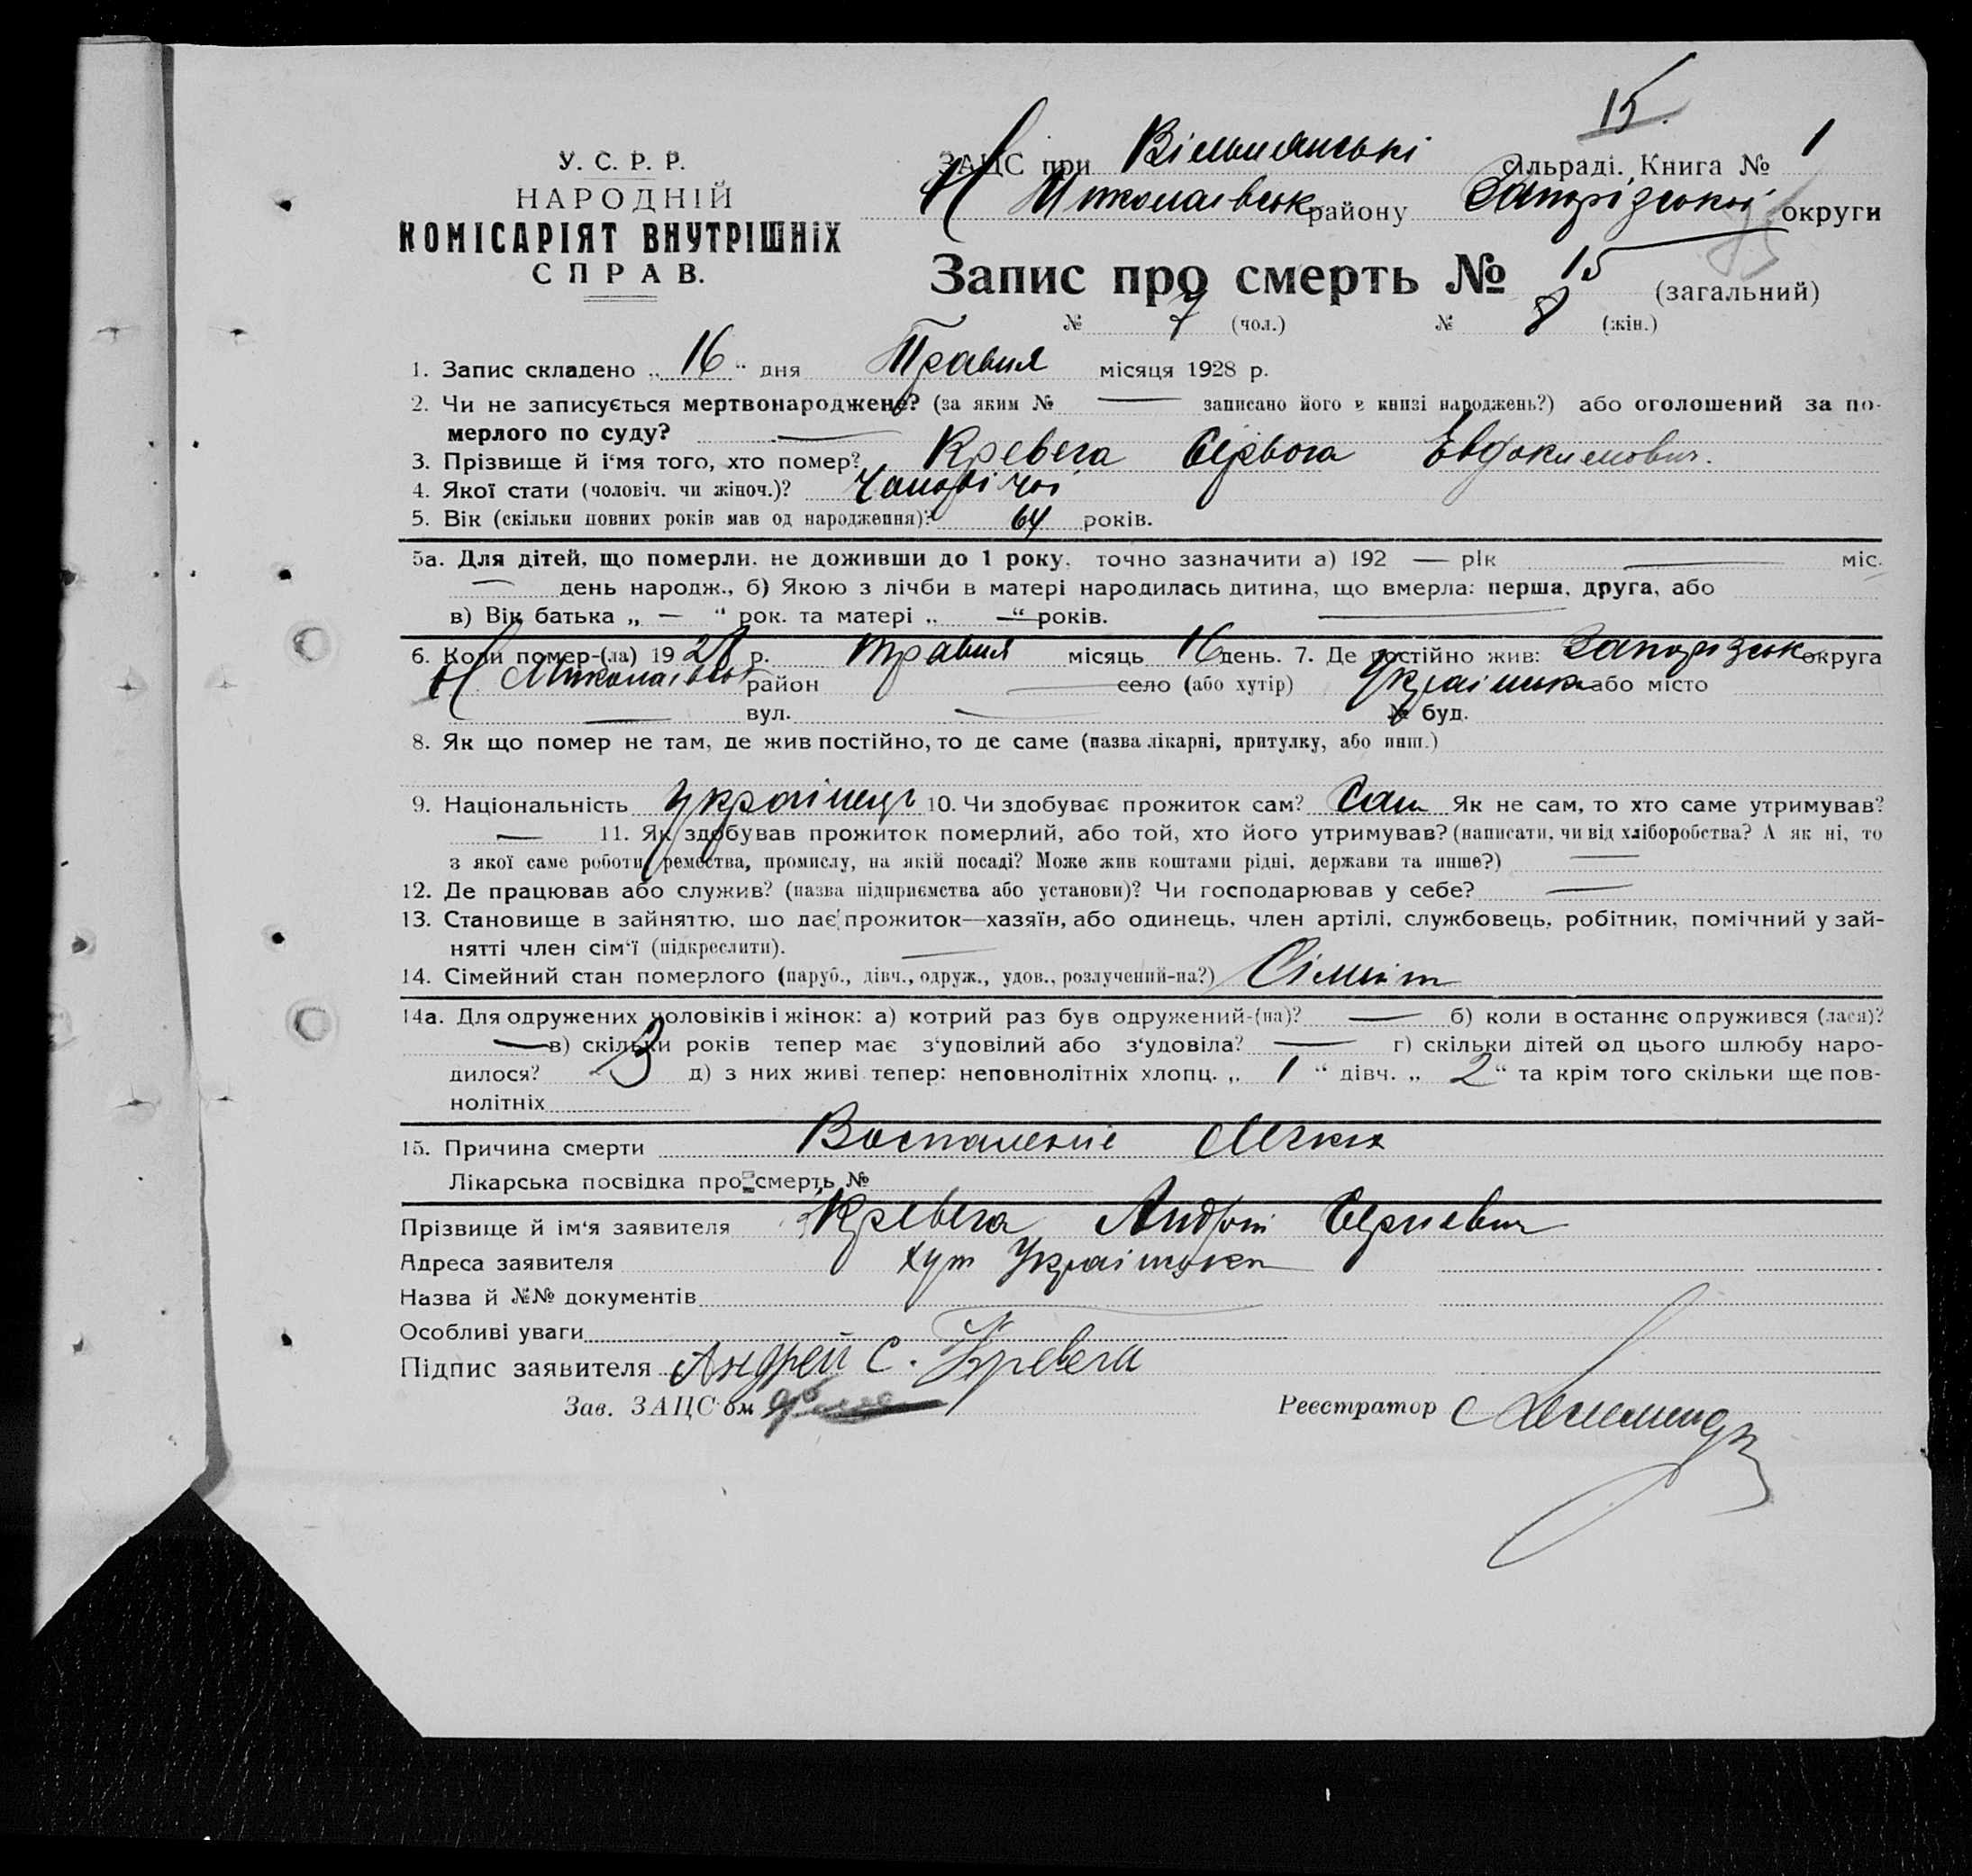 15.
У. С. Р. Р.
НАРОДНІЙ
КОМІСАРІЯТ ВНУТРІШНІХ
СПРАВ.
ЗАЦС при Вільнянські сільраді. Книга № 1
Н Миколаівськ району Запорізської округи
Запис про смерть № 15 (загальний)
№ 7 (чол.) № 8 (жін.)
1. Запис складено „ 16 “ дня Травня місяця 1928 р.
2. Чи не записується мертвонароджене? (за яким № — записано його в книзі народжень?) або оголошений за по-
мерлого по суду? —
3. Прізвище й і‘мя того, хто помер? Кревега Евдокимович.
4. Якої стати (чоловіч. чи жіноч.)?
5. Вік (скільки повних років мав од народження)? 64 років.
5а. Для дітей, що померли, не доживши до 1 року, точно зазначити а) 192 — рік — міс.
— день народж., б) Якою з лічби в матері народилась дитина, що вмерла: перша, друга, або
в) Вік батька „ — “ рок. та матері „ —“ років. —
6. Коли помер-(ла) 1928 р. травня місяць 16 день. 7. Де постійно жив: Запорізськ округа
Н Миколаівськ район — село (або хутір) Украінка або місто
— вул. — № буд.
8. Як що помер не там, де жив постійно, то де саме (назва лікарні, притулку, або инш.)
9. Національність Украінець 10. Чи здобуває прожиток сам? Сам Як не сам, то хто саме утримував?
— 11. Як здобував прожиток померлий, або той, хто його утримував? (написати, чи від хліборобства? А як ні, то
з якої саме роботи, ремества, промислу, на якій посаді? Може жив коштами рідні, держави та инше?) —
12. Де працював або служив? (назва підприємства або установи)? Чи господарював у себе? —
13. Становище в зайняттю, що дає прожиток—хазяїн, або одинець, член артілі, службовець, робітник, помічний у зай-
нятті член сім‘ї (підкреслити). —
14. Сімейний стан померлого (паруб., дівч., одруж., удов., розлучений-на?)
14а. Для одружених чоловіків і жінок: а) котрий раз був одружений-(на)? — б) коли в останнє одружився (лася)?
— в) скільки років тепер має з‘удовілий або з‘удовіла? — г) скільки дітей од цього шлюбу наро-
дилося? 3 д) з них живі тепер: неповнолітніх хлопц. „ 1 “ дівч. „ 2 “ та крім того скільки ще пов-
нолітніх
15. Причина смерти Воспаление Легких
Лікарська посвідка про смерть №
Прізвище й ім‘я заявителя Кревега Андрій Сергиевич
Адреса заявителя хут Украінська
Назва й №№ документів
Особливі уваги
Підпис заявителя Андрей С. Кревега
Зав. ЗАЦС‘ом Реєстратор